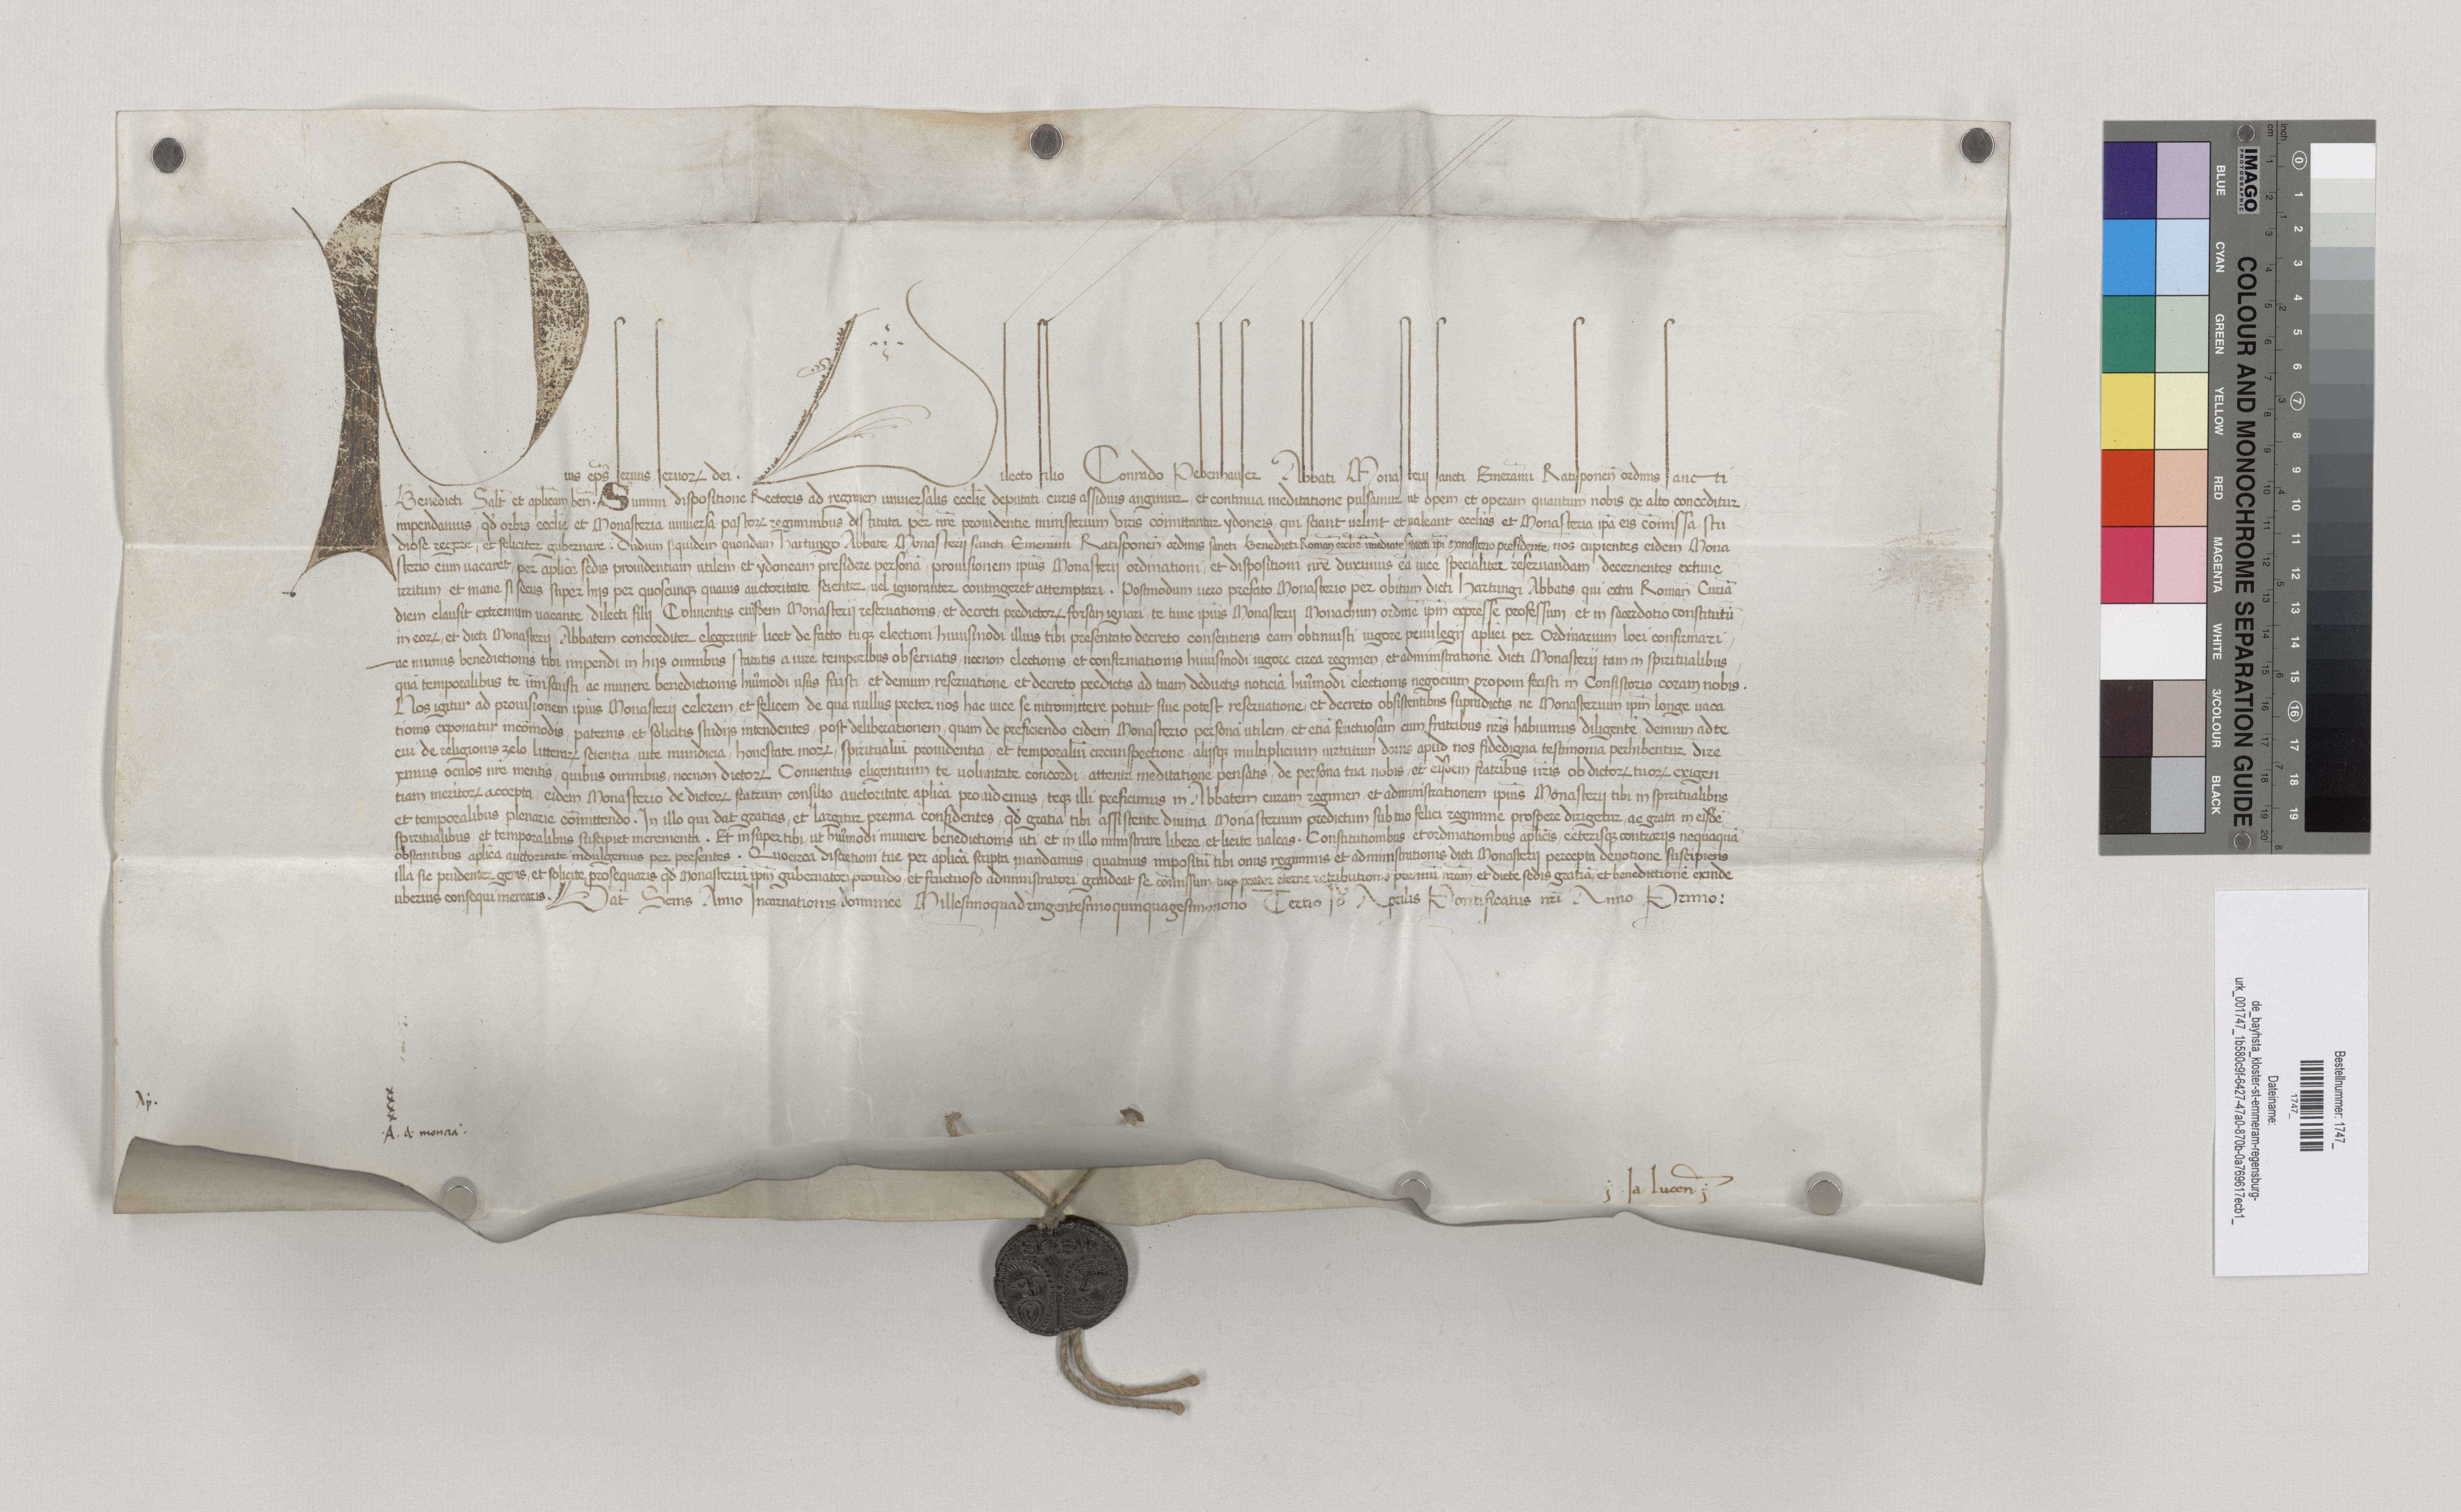 Pius eps seruus seruoꝝ dei. Dilecto filio Conrado Pebenhauser Abbati Monasterij sancti Emerāmi Ratisponeñ ordinis sancti
Benedicti Salt̄ et aplicam beñ. Summi dispositione Rectoris ad regimen uniuersalis ecclie deputati curis assiduis angimur, et continua meditatione pulsamur ut opem et operam quantum nobis ex alto conceditur
impendamus, qđ orbis ecclie et Monasteria uniuersa pastoꝝ regiminibus destituta per nr̄e prouidentie ministerium uiris cōmittantur ydoneis, qui sciant uelint et ualeant ecclias et Monasteria ip̄a eis cōmissa stu
diose regere, et feliciter gubernare. Dudum siquidem quondam Hartungo Abbate Monasterij sancti Emerāmi Ratisponeñ ordinis sancti Benedicti Romañ ecclie immediate subiecti ip̄i Monasterio presidente nos cupientes eidem Mona
sterio cum uacaret, per aplice sedis prouidentiam utilem et ydoneam presidere personā, prouisionem ipius Monasterij ordinationi, et dispositioni nr̄e duximus ea uice specialiter reseruandam, decernentes extunc
irritum et inane si secus super hijs per quoscunqꝫ quauis auctoritate scienter, uel ignoranter contingeret attemptari. Postmodum uero prefato Monasterio per obitum dicti Hartungi Abbatis, qui extra Romañ Curiā
diem clausit extremum uacante, dilecti filij Conuentus eiusdem Monasterij reseruationis, et decreti predictoꝝ forsan ignari, te tunc ipius Monasterij Monachum ordinē ip̄m expresse professum, et in sacerdotio constitutū
in eoꝝ, et dicti Monasterij Abbatem concorditer elegerunt licet de facto tuqꝫ electioni huiusmodi illius tibi presentato decreto consentiens eam obtinuisti uigore priuilegij aplici per Ordinarium loci confirmari,
ac munus benedictionis tibi impendi in hijs omnibus statutis a iure temporibus obseruatis, necnon electionis, et confirmationis huiusmodi uigore circa regimen, et administrationē dicti Monasterij tam in spiritualibus,
quā temporalibus te īmiscuisti, ac munere benedictionis hūmodi usus fuisti, et demum reseruatione, et decreto predictis ad tuam deductis noticiā hūmodi electionis negocium proponi fecisti in Consistorio coram nobis.
Nos igitur ad prouisionem ipius Monasterij celerem, et felicem de qua nullus preter nos hac uice se intromittere potuit siue potest reseruatione, et decreto obsistentibus supradictis, ne Monasterium ip̄m longe uaca
tionis exponatur incōmodis, paternis, et solicitis studijs intendentes, post deliberationem, quam de preficiendo eidem Monasterio personā utilem, et etiā fructuosam cum fratribus nr̄is habuimus diligentē, demum ad te
cui de religionis zelo, litteraꝝ scientia, uite mundicia, honestate moꝝ, spiritualiū prouidentia, et temporaliū circunspectione, alijsqꝫ multiplicium uirtutum donis apud nos fidedigna testimonia perhibentur dire
ximus oculos nr̄e mentis, quibus omnibus, necnon dictoꝝ Conuentus eligentium te uoluntate concordi attenta meditatione pensatis, de persona tua nobis, et eisdem fratribus nr̄is ob dictoꝝ tuoꝝ exigen
tiam meritoꝝ accepta, eidem Monasterio de dictoꝝ fratrum consilio auctoritate aplica prouidemus, teqꝫ illi preficimus in Abbatem, curam regimen et administrationem ipius Monasterij tibi in spiritualibus
et temporalibus plenarie cōmittendo. In illo qui dat gratias, et largitur premia confidentes, qđ gratia tibi assistente diuina Monasterium predictum sub tuo felici regimine prospere dirigetur, ac grata in eisdē
spiritualibus et temporalibus suscipiet incrementa. Et insuper tibi, ut hūmodi munere benedictionis uti et in illo ministrare libere et licite ualeas. Constitutionibus et ordinationibus aplicis, ceterisqꝫ contrarijs nequaquā
obstantibus aplica auctoritate indulgemus per presentes. Quocirca discretioni tue per aplica scripta mandamus, quatinus impositū tibi onus regiminis et administrationis dicti Monasterij percepta deuotione suscipiens
illa sic prudenter geras, et solicite prosequaris qđ Monasteriū ip̄m gubernatori prouido, et fructuoso administratori gaudeat se cōmissum, tuqꝫ preter eterne retributionis premiū nr̄am et dicte sedis gratiā et benedictionē exinde
uberius consequi merearis. Dat Senis Anno Incarnationis dominice Millesimoquadringentesimoquinquagesimonono Tercio Id Aprilis Pontificatus nr̄i Anno Primo:
xxxx
A. de moncia
ja. lucen
BLUE
CYAN
GREEN
YELLOW
RED
MAGENTA
WHITE
3/COLOUR
BLACK
IMAGO
PHOTOGRAPHIC
COLOUR AND MONOCHROME SEPARATION GUIDE
cm 1 2 3 4 5 6 7 8 9 10 11 12 13 14 15 16 17 18 19 20
inch 1 2 3 4 5 6 7 8
0 1 2 3 4 5 6 7 8 9 10 11 12 13 14 15 16 17 18 19
Bestellnummer: 1747_
1747_
Dateiname:
de_bayhsta_kloster-st-emmeram-regensburg-
urk_001747_1b580c9f-6427-47a0-870b-0a769617ecb1_